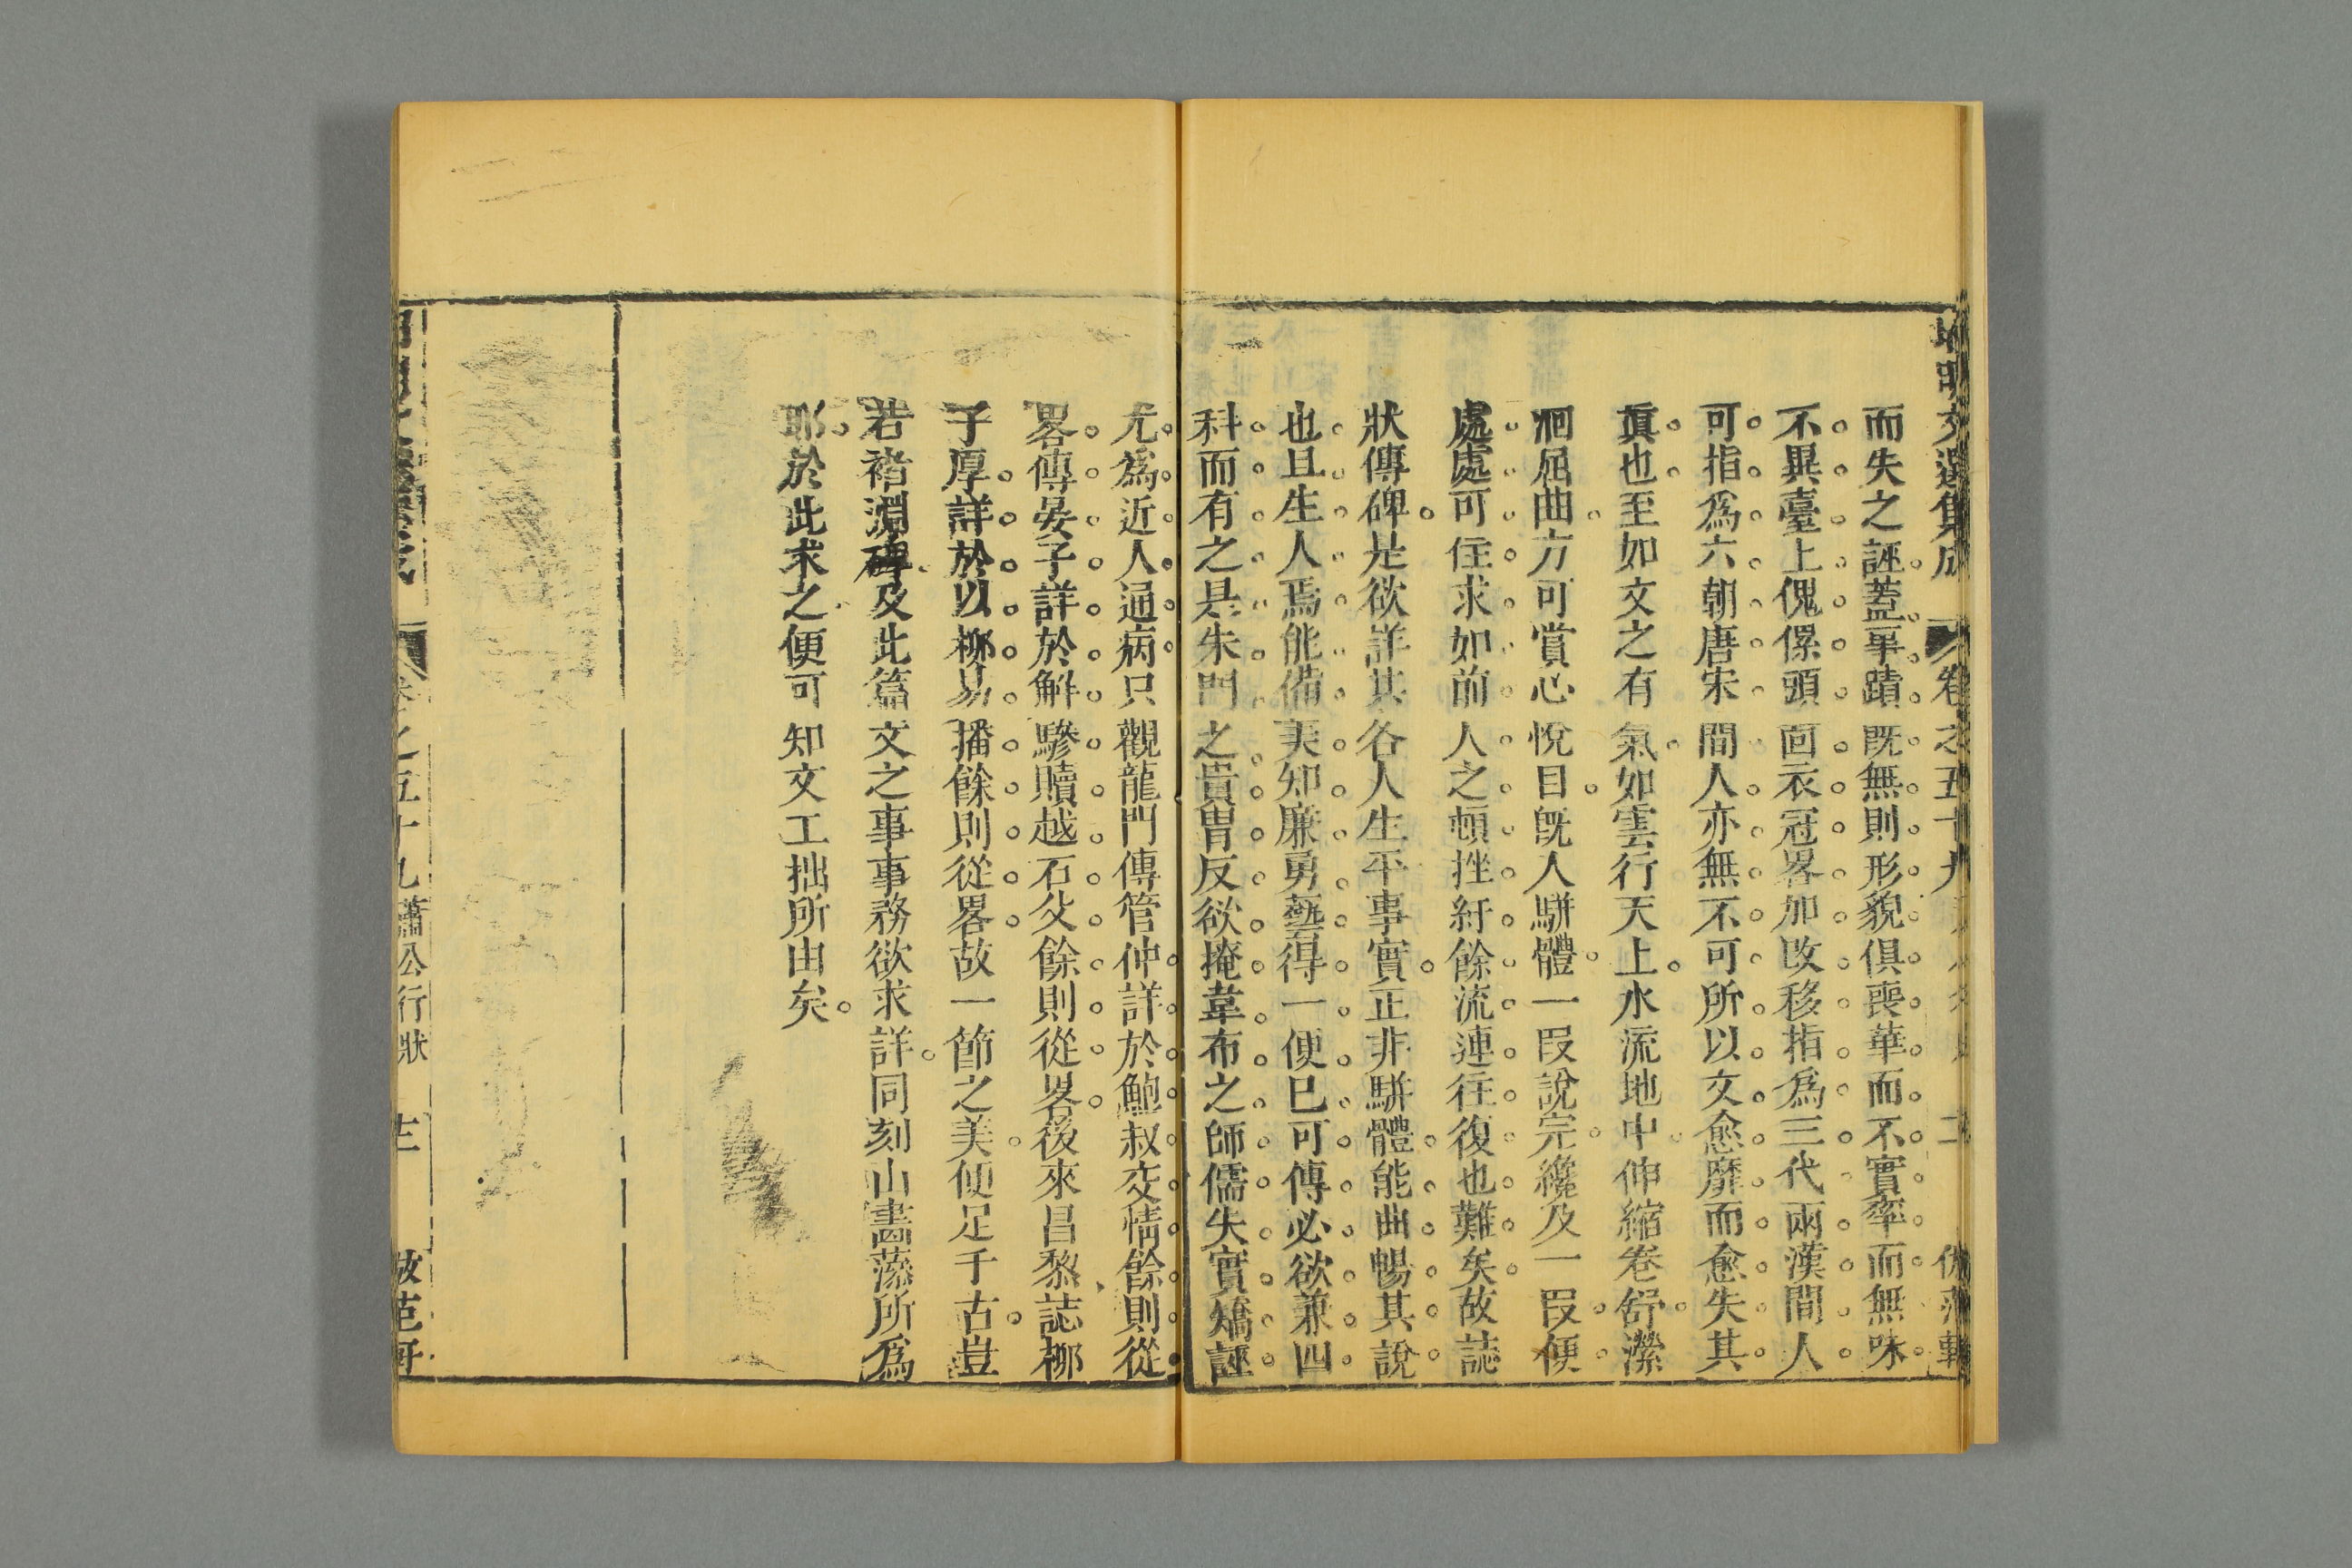 而失之誣蓋事蹟既無則形貌俱喪華而不實率而無味
不異臺上傀儡頭回衣冠畧加改移指爲三代兩漢間人
可指爲六朝唐宋間人亦無不可所以文愈靡而愈失其
真也至如文之有氣如雲行天上水流地中伸縮卷舒瀠
洄屈曲方可賞心悅目旣人駢體一叚說完纔及一叚便
處處可住求如前人之頓挫紆餘流連往復也難矣故誌
狀傳碑是欲詳其各人生平事實正非駢體能曲暢其說
也且生人焉能備美知廉勇藝得一便已可傳必欲兼四
科而有之是朱門之貴胄反欲掩韋布之師儒失實矯誣
尤爲近人通病只觀龍門傳管仲詳於鮑叔交情餘則從
畧傳晏子詳於解驂贖越石父餘則從畧後來昌黎誌柳
子厚詳於以柳易播餘則從畧故一節之美便足千古豈
若褚淵碑及此篇文之事事務欲求詳同刻山畵藻所爲
耶於此求之便可知文工拙所由矣
卷之五十九蕭公行狀